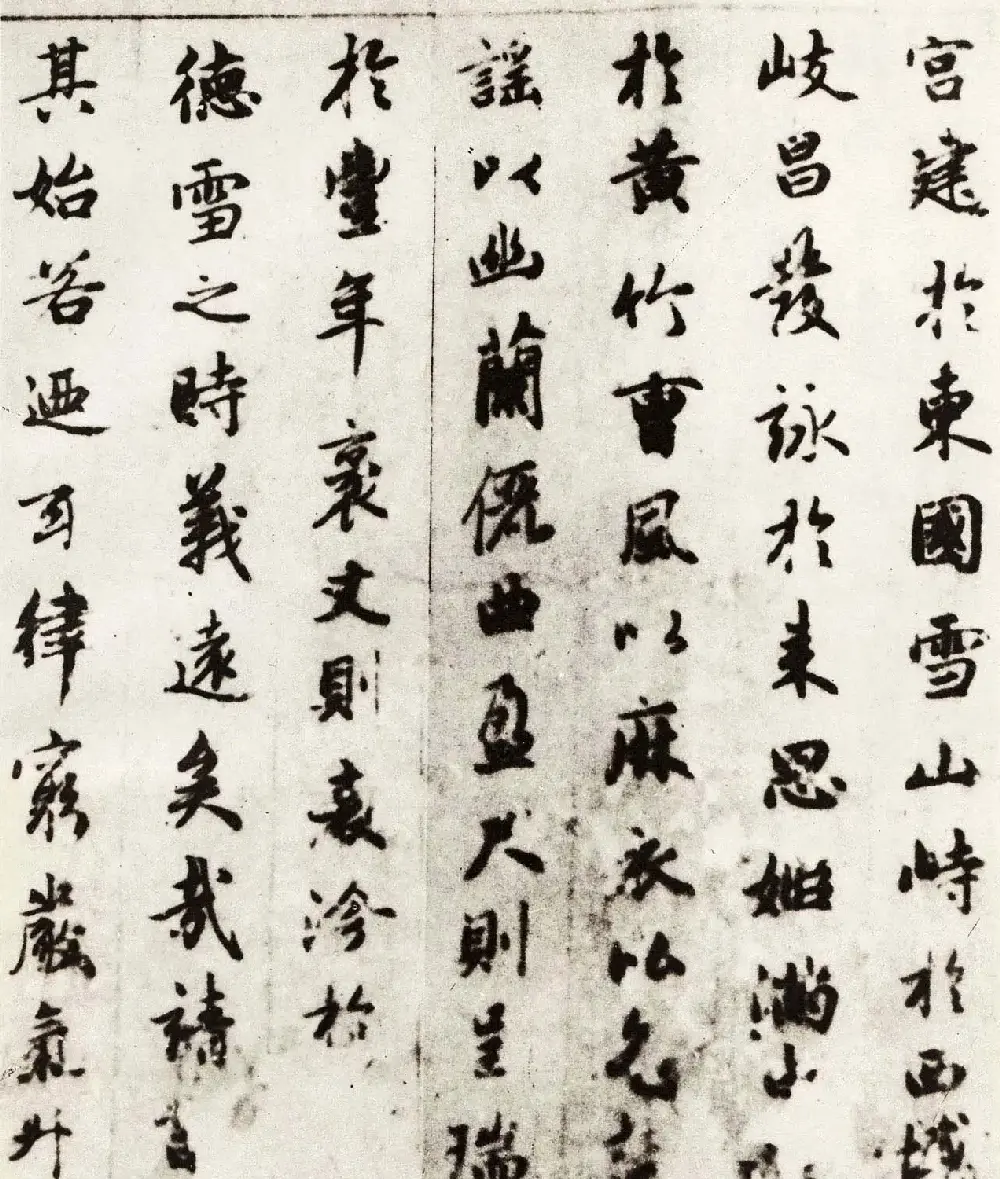 宫建於東國雪山峙於西域
岐昌發詠於来思姬滿
於黄竹曹風以麻衣以色
謡以幽蘭儷曲盈尺則呈瑞
於豐年袤丈則表沴於
德雪之時義遠矣哉請言
其始若迺玄律窮嚴氣升